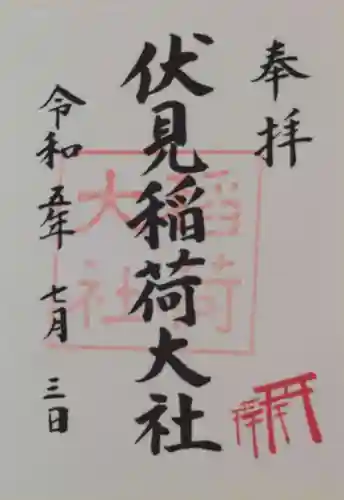 奉拝
伏見稲荷大社
令和五年七月三日
稲荷
大社